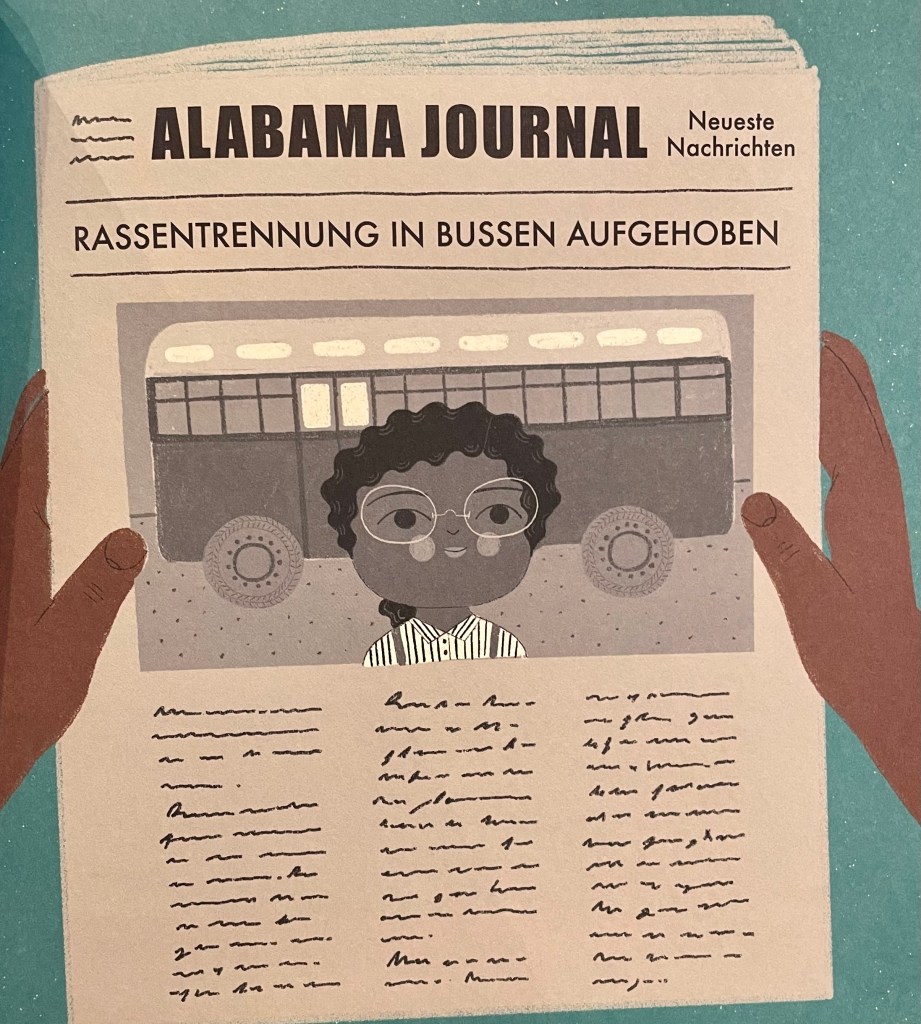 ALABAMA JOURNAL
Neueste
Nachrichten
RASSENTRENNUNG IN BUSSEN AUFGEHOBEN